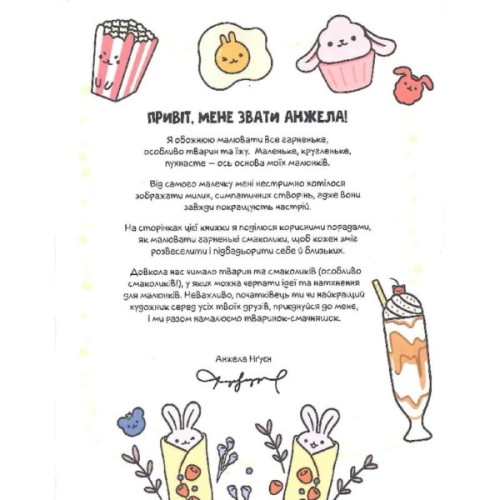 ПРИВІТ, МЕНЕ ЗВАТИ АНЖЕЛА!
Я обожнюю малювати все гарненьке,
особливо тварин та їжу. Маленьке, кругленьке,
пухнасте — ось основа моїх малюнків.
Від самого малечку мені нестримно хотілося
зображати милих, симпатичних створінь, адже вони
завжди покращують настрій.
На сторінках цієї книжки я поділюся корисними порадами,
як малювати гарненькі смаколики, щоб кожен зміг
розвеселити і підбадьорити себе й близьких.
Довкола нас чимало тварин та смаколиків (особливо
смаколиків!), у яких можна черпати ідеї та натхнення
для малюнків. Неважливо, початківець ти чи найкращий
художник серед усіх твоїх друзів, приєднуйся до мене,
і ми разом намалюємо тваринок-смачняшок.
Анжела Нгуєн